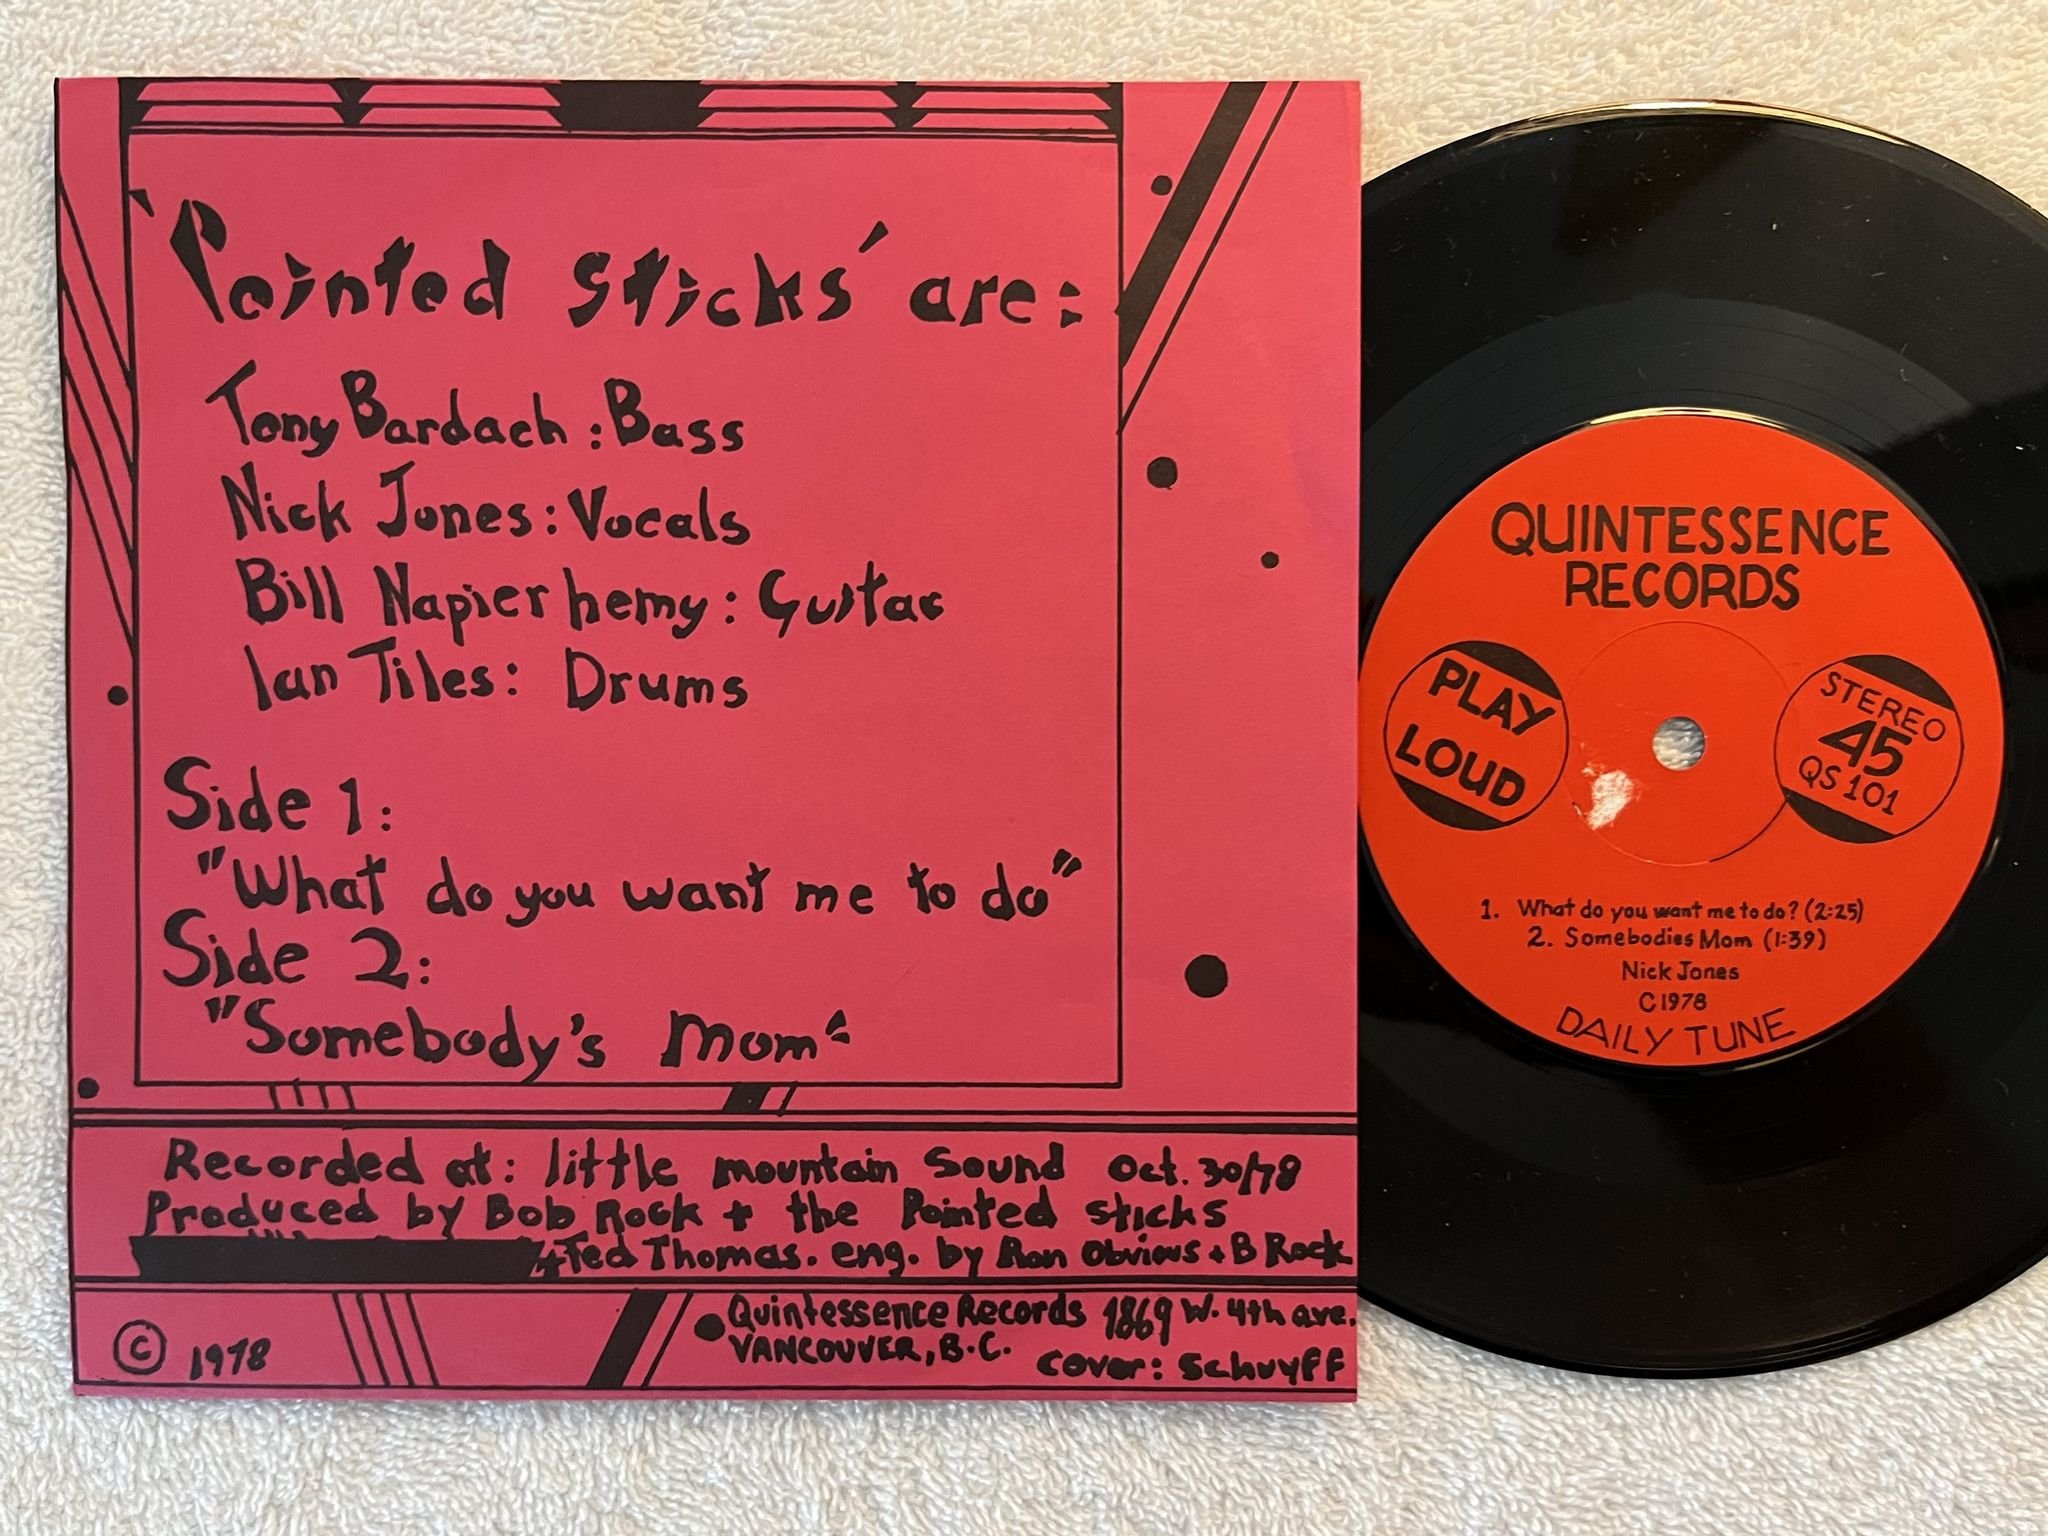 'Pointed Sticks' are:
Tony Bardach : Bass
Nick Jones : Vocals
Bill Napier hemy : Guitar
Ian Tiles : Drums
Side 1:
"What do you want me to do"
Side 2:
"Somebody's Mom"
Recorded at: little mountain Sound Oct. 30/78
Produced by Bob Rock + the Pointed sticks
+Ted Thomas. eng. by Ron Obvious + B Rock
© 1978
Quintessence Records 1869 W. 4th ave.
VANCOUVER, B.C.
Cover: Schuyff
QUINTESSENCE
RECORDS
PLAY
LOUD
STEREO
45
QS 101
1. What do you want me to do? (2:25)
2. Somebodies Mom (1:39)
Nick Jones
C 1978
DAILY TUNE